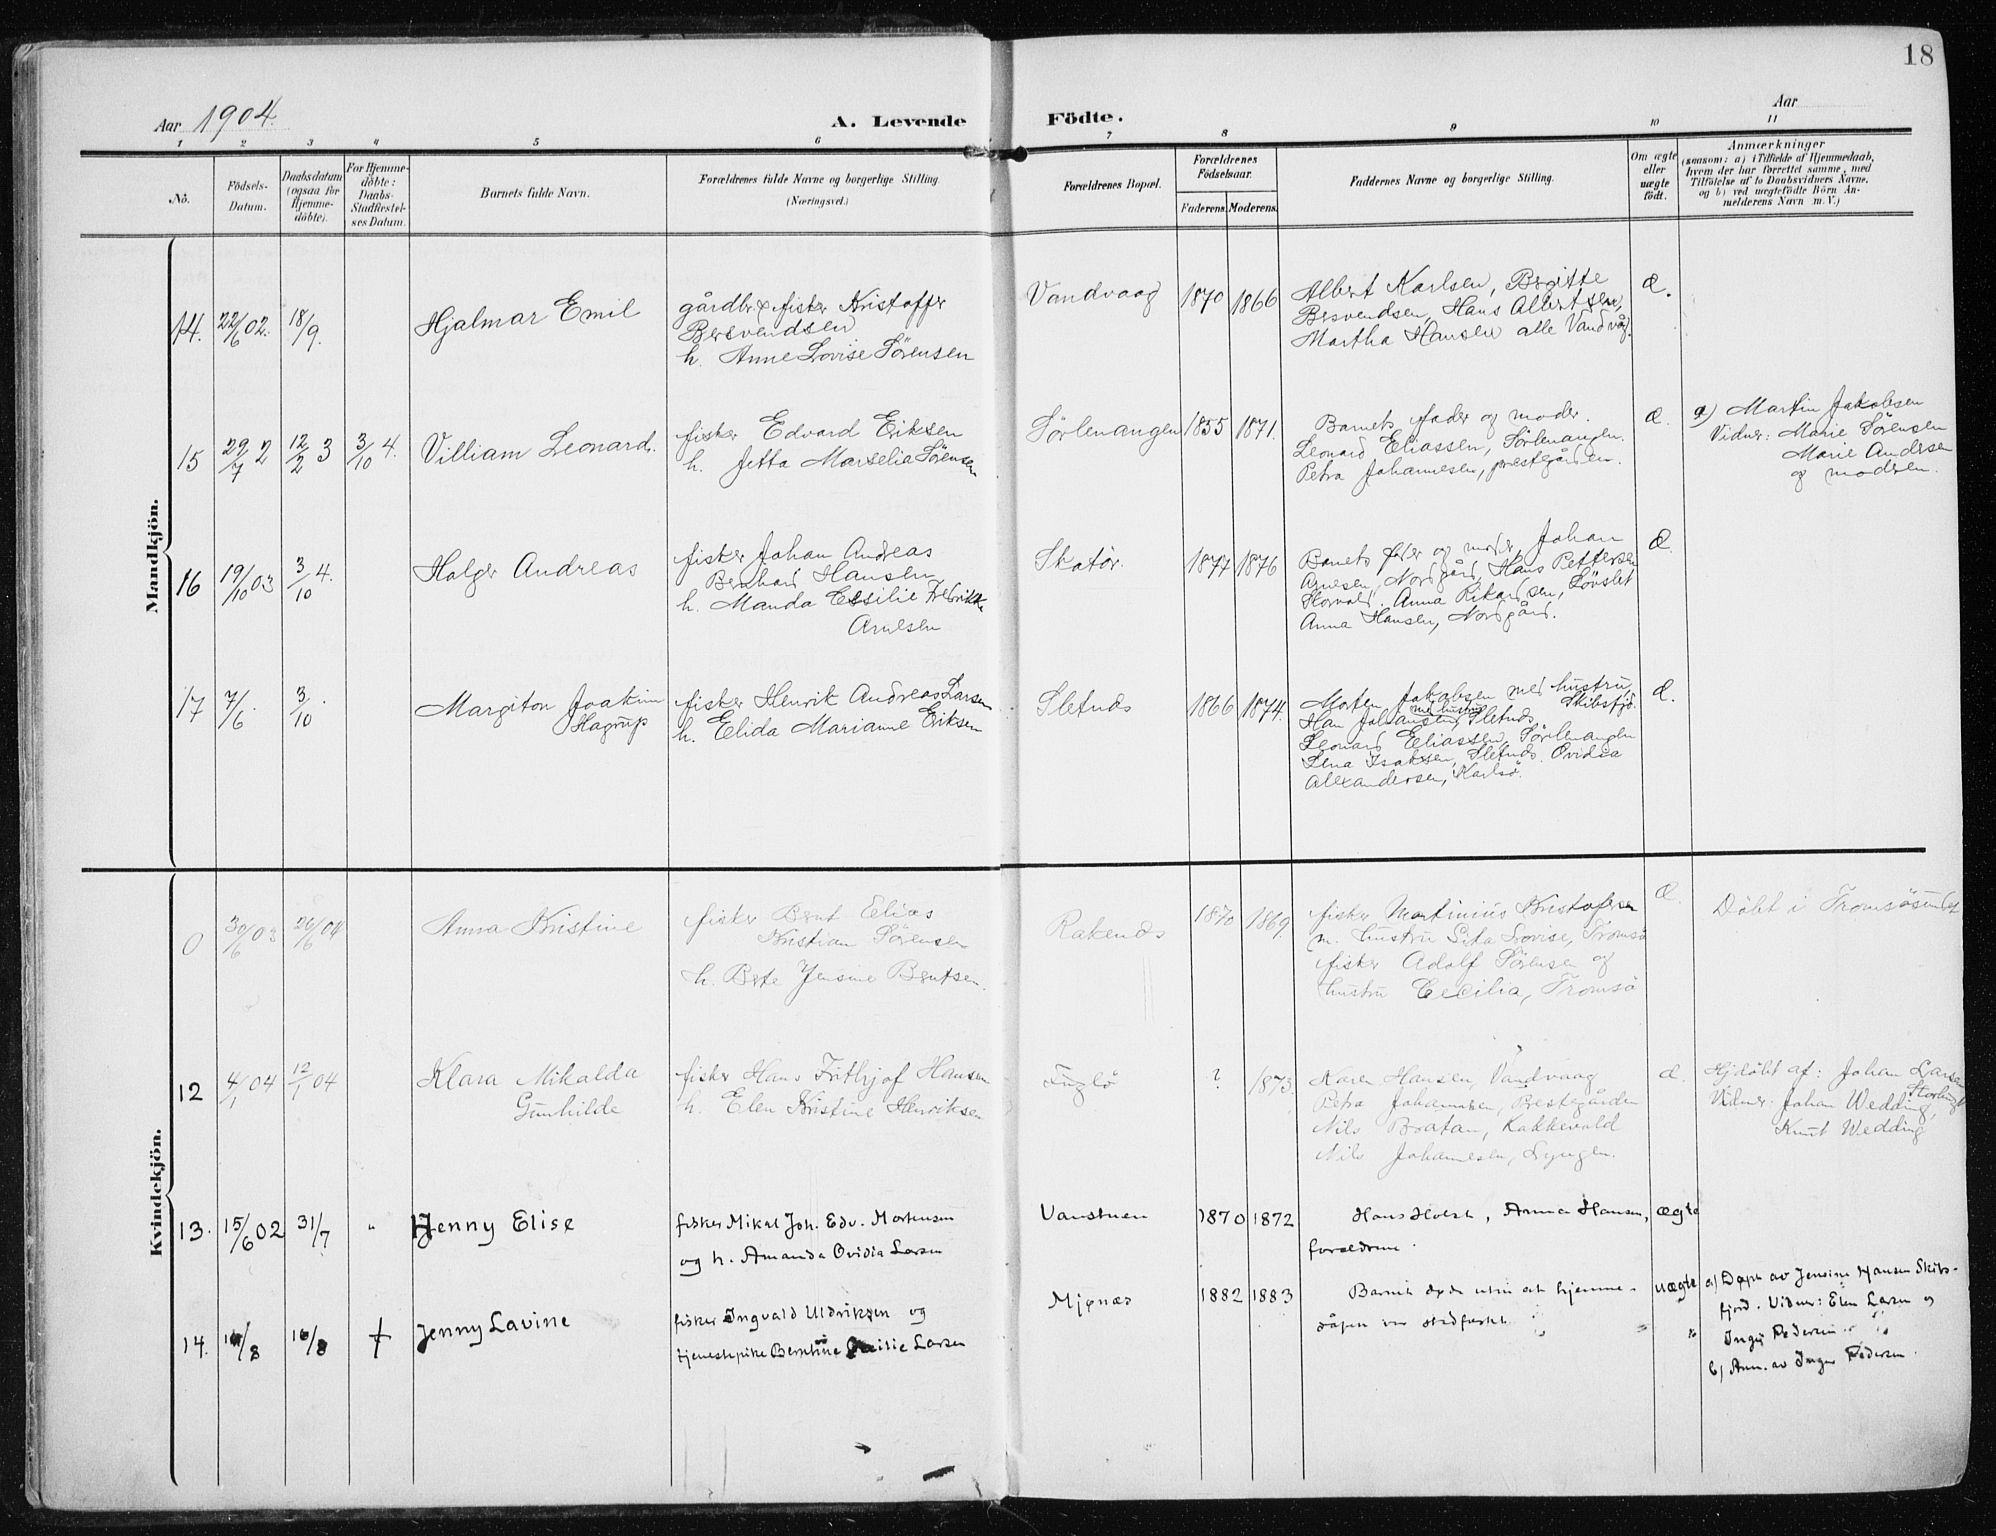 18
Aar 1904.
A. Levende Födte.
Aar
1 2 3 4 5 6 7 8 9 10 11
No.
Födsels-
Datum.
Daabsdatum
(ogsaa for
Hjemme-
döbte).
For Hjemme-
döbte:
Daabs-
Stadfæstel-
ses Datum.
Barnets fulde Navn.
Forældrenes fulde Navne og borgerlige Stilling.
(Næringsvei.)
Forældrenes Bopæl.
Forældrenes
Födselsaar.
Faderens. Moderens.
Faddernes Navne og borgerlige Stilling.
Om ægte
eller
uægte
født.
Anmærkninger
(saasom: a) i Tilfælde af Hjemmedaab,
hvem der har forrettet samme, med
Tilföielse af to Daabsvidners Navne,
og b) ved uægtefödte Börn An-
melderens Navn m. V.)
Mandkjön.
14. 22/6 02. 18/9. Hjalmar Emil
gårdbr. & fisker Kristoffer
Bersvendsen
h. Anne Lovise Sørensen
Vandvaag 1870 1866
Albert Karlsen, Birgitte
Bersvendsen, Hans Albertsen,
Martha Hansen alle Vandvåg.
Æ.
15 29/7 2 12/2 3 3/10 4. Villiam Leonard.
fisker Edvard Eriksen
h. Jetta Marselia Sørensen
Sørlenangen 1855 1871.
Barnets fader og moder.
Leonard Eliassen, Sørlenangen.
Petra Johannesen, prestegården.
Æ.
a) Martin Jakobsen
Vidner: Marie Sørensen
Marie Andersen
og moderen.
16 19/10 03 3/10 4. Holger Andreas
fisker Johan Andreas
Bernhard Hansen
h. Manda Cesilie Fredrikke
Arnesen
Skatør. 1877 1876
Barnets fader og moder, Johan
Arnesen, Nordgård, Hans Pettersen
Storvold. Anna Rikardsen, Løvslet
Anna Hansen, Nordgård.
Æ.
17 7/6. 3/10. Margiton Joakim
Hagrup
fisker Henrik Andreas Larsen
h. Elida Marianne Eriksen
Sletnds 1866 1874.
Morten Jakobsen med hustru, Skibsfjd.
Han Johansen, m. hustru Sletnds,
Leonard Eliassen, Sørlenangen
Lena Isaksen, Sletnds. Ovidia
Alexandersen, Karlsø.
Æ.
Kvindekjön.
0 30/6 03 26/6 04 Anna Kristine
fisker Bernt Elias
Kristian Sørensen
h. Berte Jensine Berntsen.
Rakends 1870 1869.
fisker Martinius Kristofersen
m. hustru Lovise, Tromsø
fisker Adolf Sørensen og
hustru Cecilia, Tromsø
Æ
Døbt i Tromsøsundet
12 4/1 04 12/1 04 Klara Mikalda
Gunhilde
fisker Hans Frithjof Hansen
h. Elen Kristine Henriksen
Fuglø ? 1873.
Karen Hansen, Vandvaag
Petra Johannesen, Prestegården
Nils Bratan, Kakkevold
Nils Johannesen, Lyngen.
Æ.
Hjdøbt af: Johan Larsen
Vidner: Johan Wedding,
Knut Wedding
13. 15/6 02 31/7 " Henny Elise
fisker Mikal Joh. Edv. Mortensen
og h. Amanda Ovidia Larsen
Vanstuen 1870 1872
Hans Holst, Anna Hansen,
forældrene.
ægte
14. 16/8 16/8 + Jenny Lavine
fisker Ingvald Uldriksen og
tjenestepike Berntine Larsen
Mjønæs 1882 1883
Barnet døde uten at hjemme-
dåpen var stadfæstet
uægte
a) Døpt av Jensine Hansen Skibs-
fjord. Vidner: Elen Larsen og
Inger Pedersen
b) Anm. av Inger Pedersen.